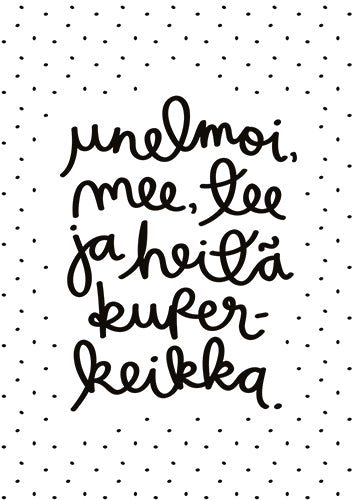 unelmoi,
mee, tee
ja heitä
kuper-
keikka.